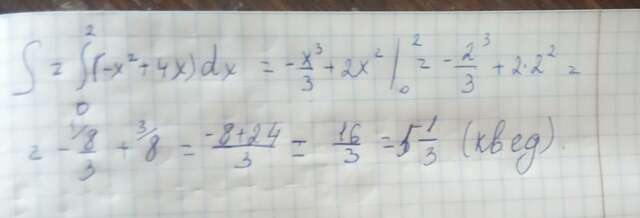 S = ∫₀² (-x² + 4x) dx = -x³/3 + 2x² |₀² = -2³/3 + 2·2² =
= -¹⁾8/3 + ³⁾8 = (-8+24)/3 = 16/3 = 5 1/3 (кв ед).